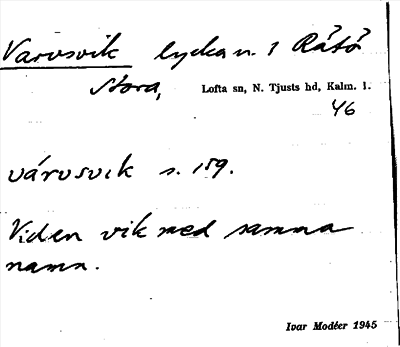 Varusvik lycka n. 1 Råtö
Stora,
Lofta sn, N. Tjusts hd, Kalm. l.
46
várusvik s. 159.
Viden vik med samma
namn.
Ivar Modéer 1945